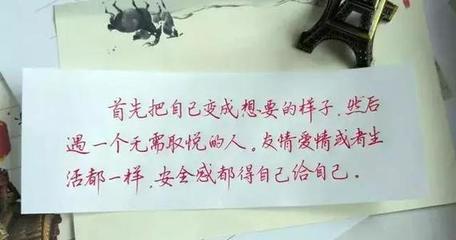 首先把自己变成想要的样子,然后
遇一个无需取悦的人。友情爱情或者生
活都一样,安全感都得自己给自己。